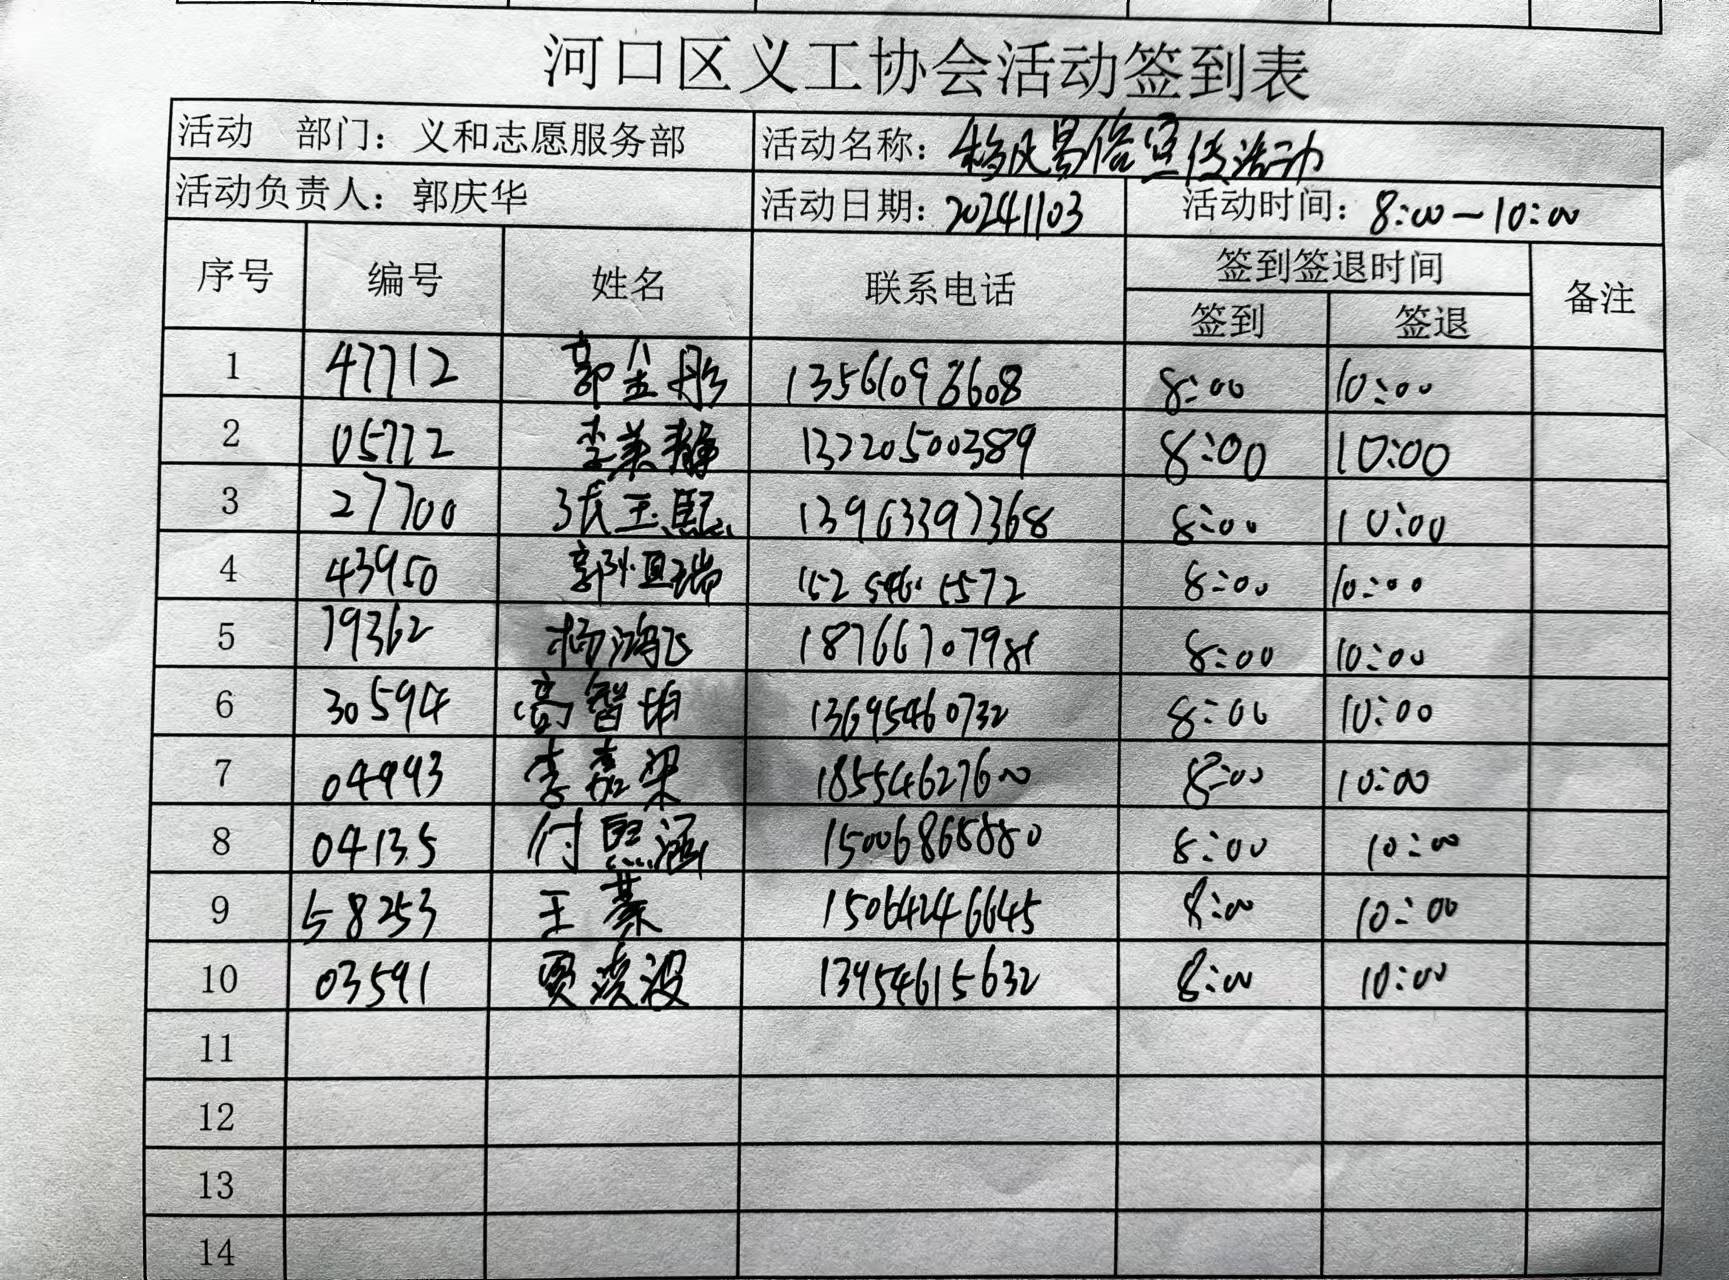 河口区义工协会活动签到表
活动 部门：义和志愿服务部 活动名称：移风易俗宣传活动
活动负责人：郭庆华 活动日期：20241103 活动时间：8:00—10:00
序号 编号 姓名 联系电话 签到签退时间 备注
签到 签退
1 47712 郭金彤 13561098608 8:00 10:00
2 05772 李美静 13220500389 8:00 10:00
3 27700 张玉熙 13963397368 8:00 10:00
4 43950 8:00 10:00
5 79362 杨鸿飞 18766707981 8:00 10:00
6 30594 高智 13695460732 8:00 10:00
7 04993 李嘉梁 18554627600 8:00 10:00
8 04135 付熙涵 15006868880 8:00 10:00
9 58253 王 15064246645 8:00 10:00
10 03591 贾 13954615632 8:00 10:00
11
12
13
14